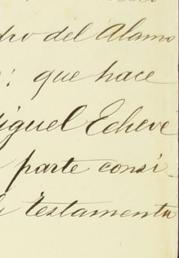 dro del Alamo
: que hace
iguel Echeve
parte consi-
testamenta